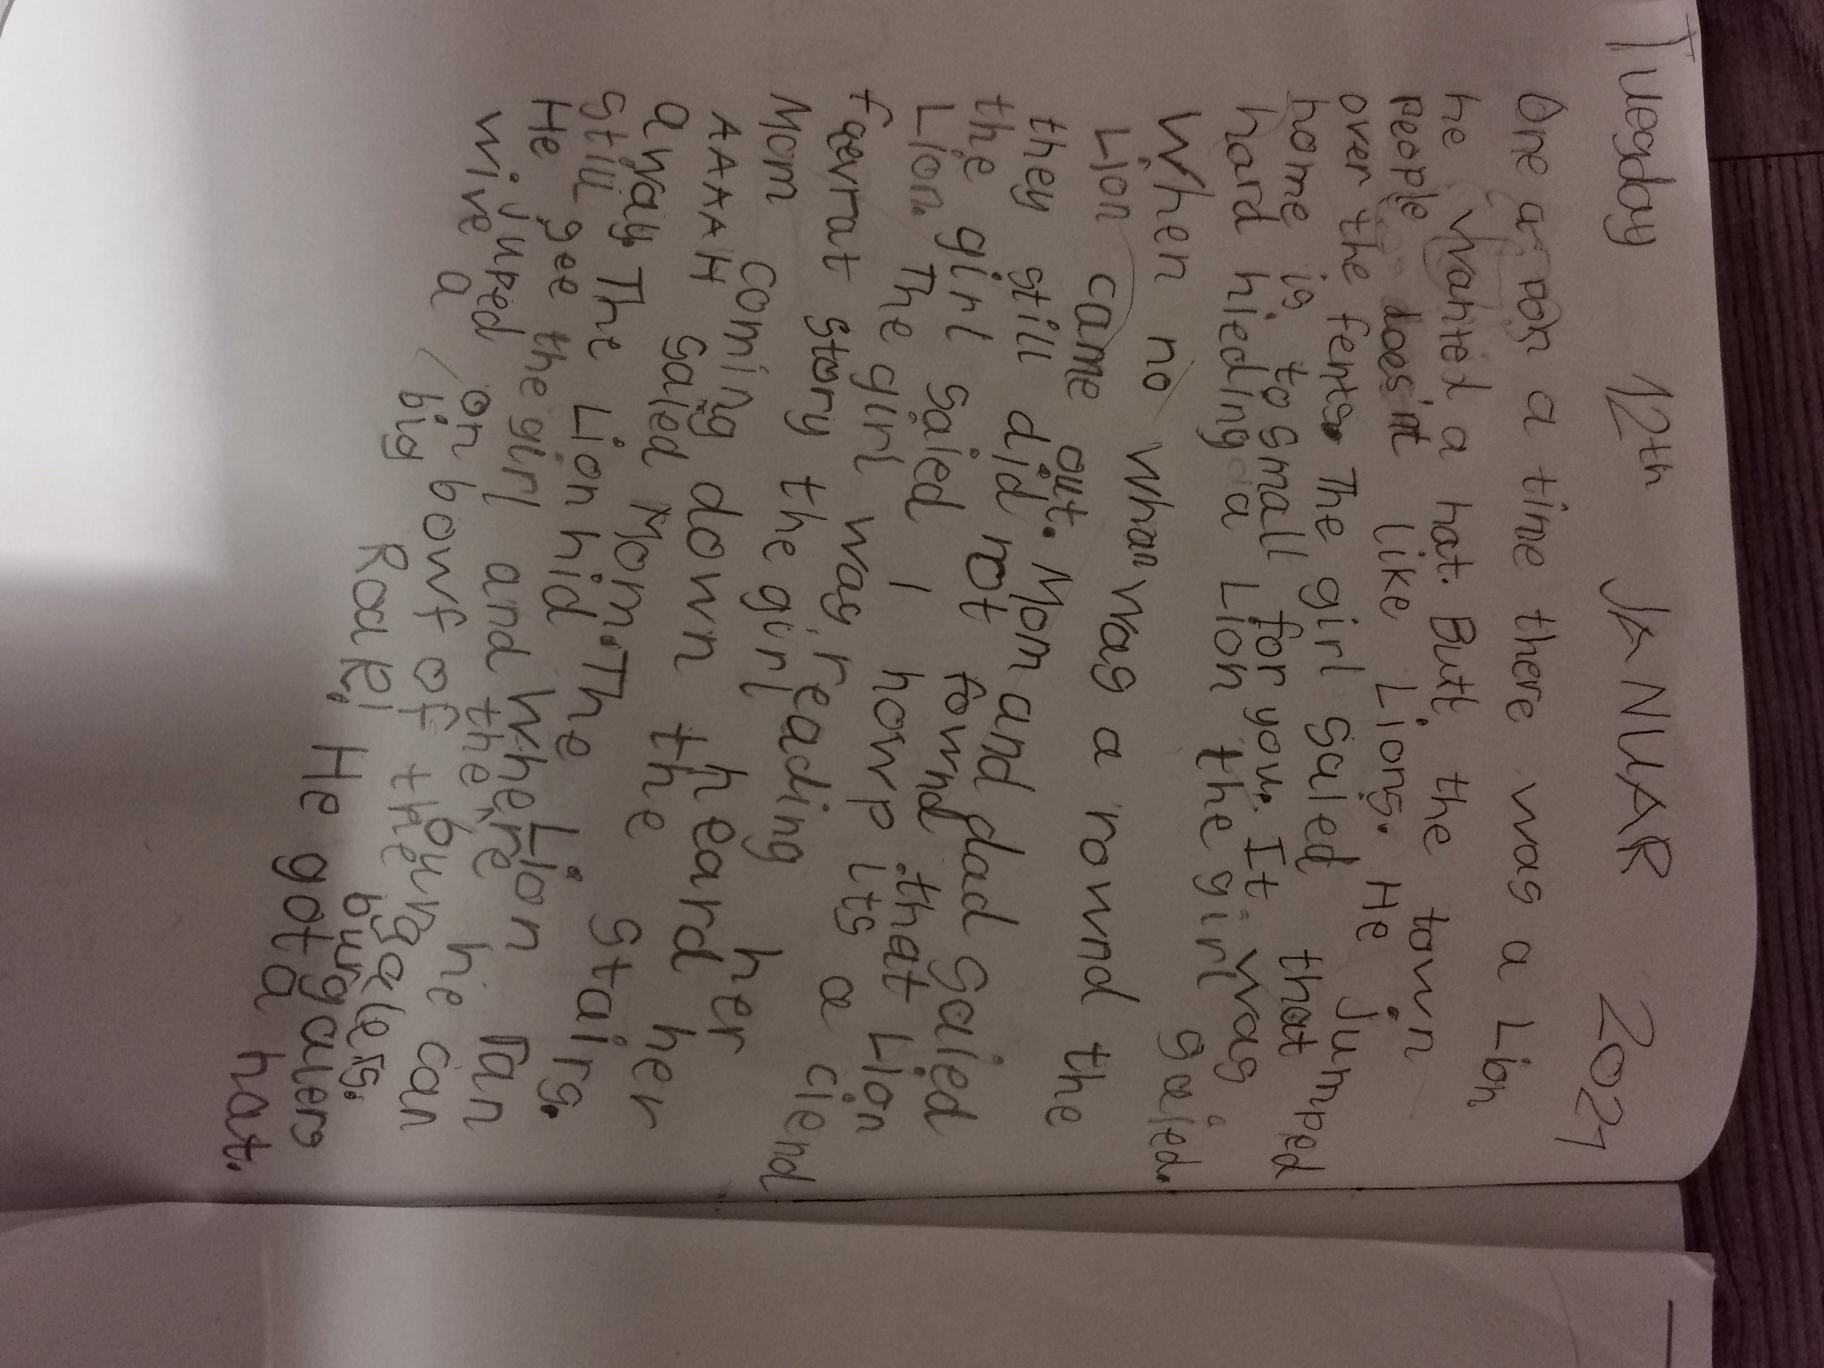 Tuesday 12th JANUAR 2021
One a pon a time there was a Lion
he wanted a hat. But the town
people does nt like Lions. He jumped
over the fents. The girl saied that
home is to small for you. It was
hard hieding a Lion the girl saied.
When no whan was a round the
Lion came out. Mom and dad saied
they still did not fownd that Lion
the girl saied I howp its a ciend
Lion. The girl was reading her
favrat story the girl heard her
Mom coming down the stairs.
AAAAH saied Mom. The Lion ran
away. The Lion hid where he can
still see the girl and the burgalers.
He juped on bowf of the burgalers
wive a big RoaR! He got a hat.